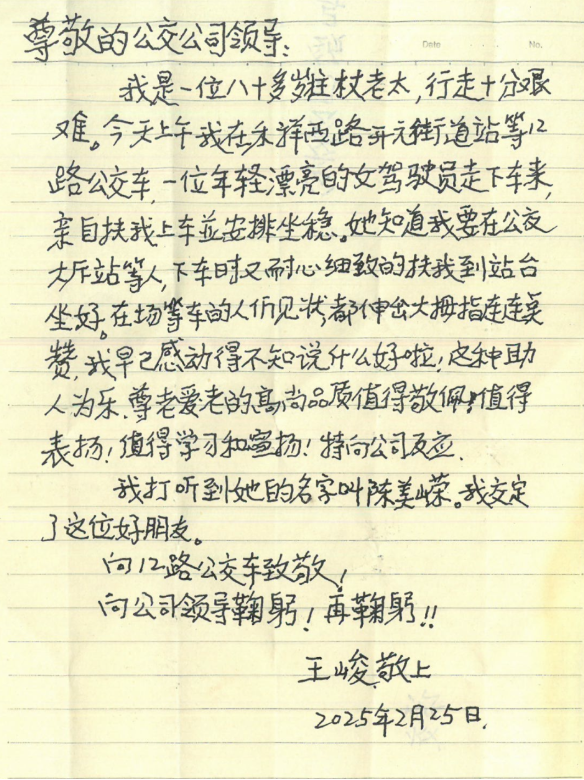 Date No.
尊敬的公交公司领导:
我是一位八十多岁拄杖老太,行走十分艰
难。今天上午我在永祥西路开元街道站等12
路公交车,一位年轻漂亮的女驾驶员走下车来,
亲自扶我上车並安排坐稳。她知道我要在公交
大厦站等人,下车时又耐心细致的扶我到站台
坐好。在场等车的人们见状,都伸出大拇指连连
赞,我早已感动得不知说什么好啦!这种助
人为乐、尊老爱老的高尚品质值得敬佩!值得
表扬!值得学习和宣扬!特向公司反应.
我打听到她的名字叫陈美嵘。我交定
了这位好朋友。
向12路公交车致敬!
向公司领导鞠躬!再鞠躬!!
王峻敬上
2025年2月25日.